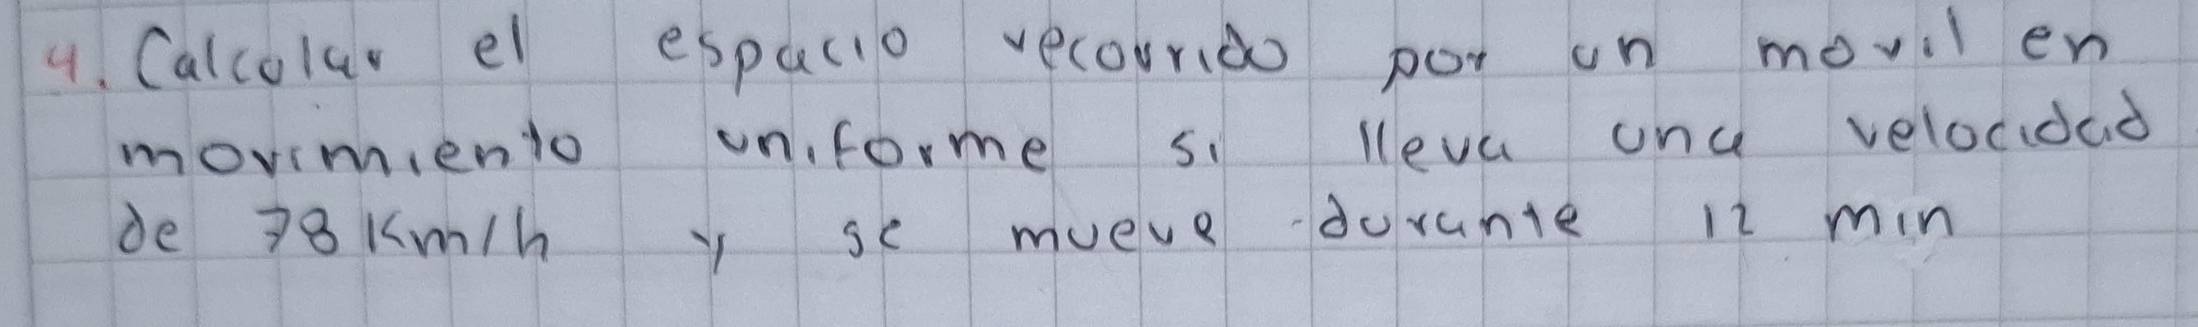 4. Calcular el espacio recorrido por un movil en
movimiento uniforme si lleva una velocidad
de 78 Km/h y se mueve durante 12 min